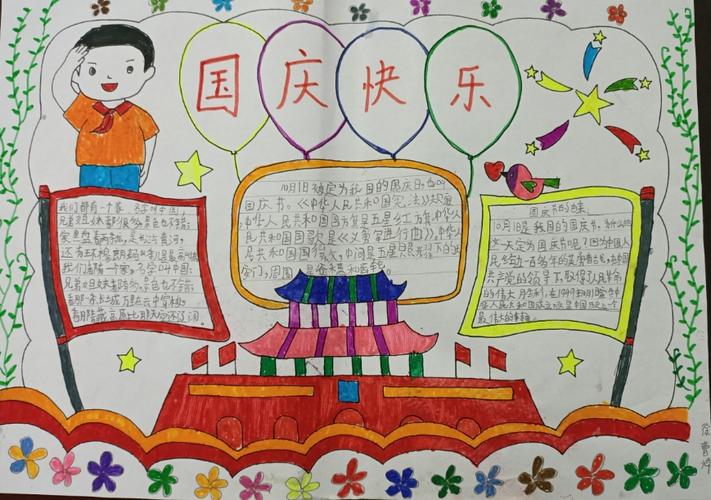 国庆快乐
我们都有一个家,名字叫中国,
兄弟姐妹都很多,景色也不错,
家里盘着两条龙,是长江与黄河,
还有珠穆朗玛
我们都有一个家,名字叫中国,
兄弟姐妹都很多,景色也不错,
看那一条长城万里在云中穿梭,
看那青藏高原比那天空还辽阔
10月1日被定为我国的国庆日,也叫
国庆节。《中华人民共和国宪法》规定
中华人民共和国国旗是五星红旗,中华人
民共和国国歌是《义勇军进行曲》,中华人
民共和国国徽,中间是五星照耀下的天
安门,周围是谷穗和齿轮。
国庆节的由来
10月1日是我国的国庆节。为什么把
这一天定为国庆节呢?因为中国人
民经过一百多年的英勇奋战,在中国
共产党的领导下,取得了人民革命
的伟大胜利,在1949年10月1日
华人民共和国成立,这是中国历史上一个
最伟大的